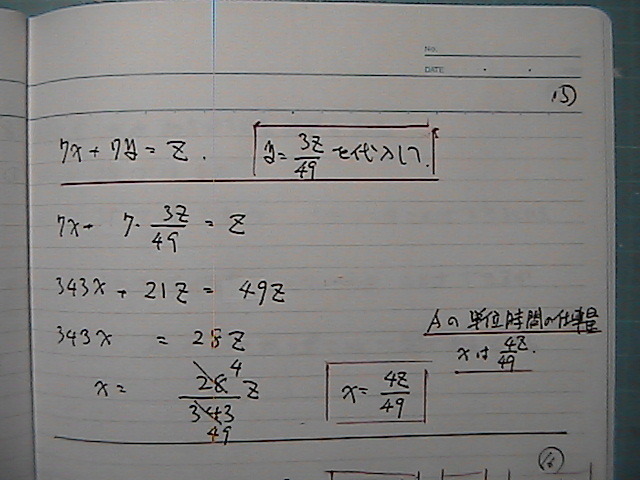 No.
DATE
⑮
7x + 7y = z. y = 3z/49 を代入して.
7x + 7・3z/49 = z
343x + 21z = 49z
343x = 28z
Aの単位時間の仕事量
xは 4z/49.
x = 28/343 z 4 49
x = 4z/49
⑯